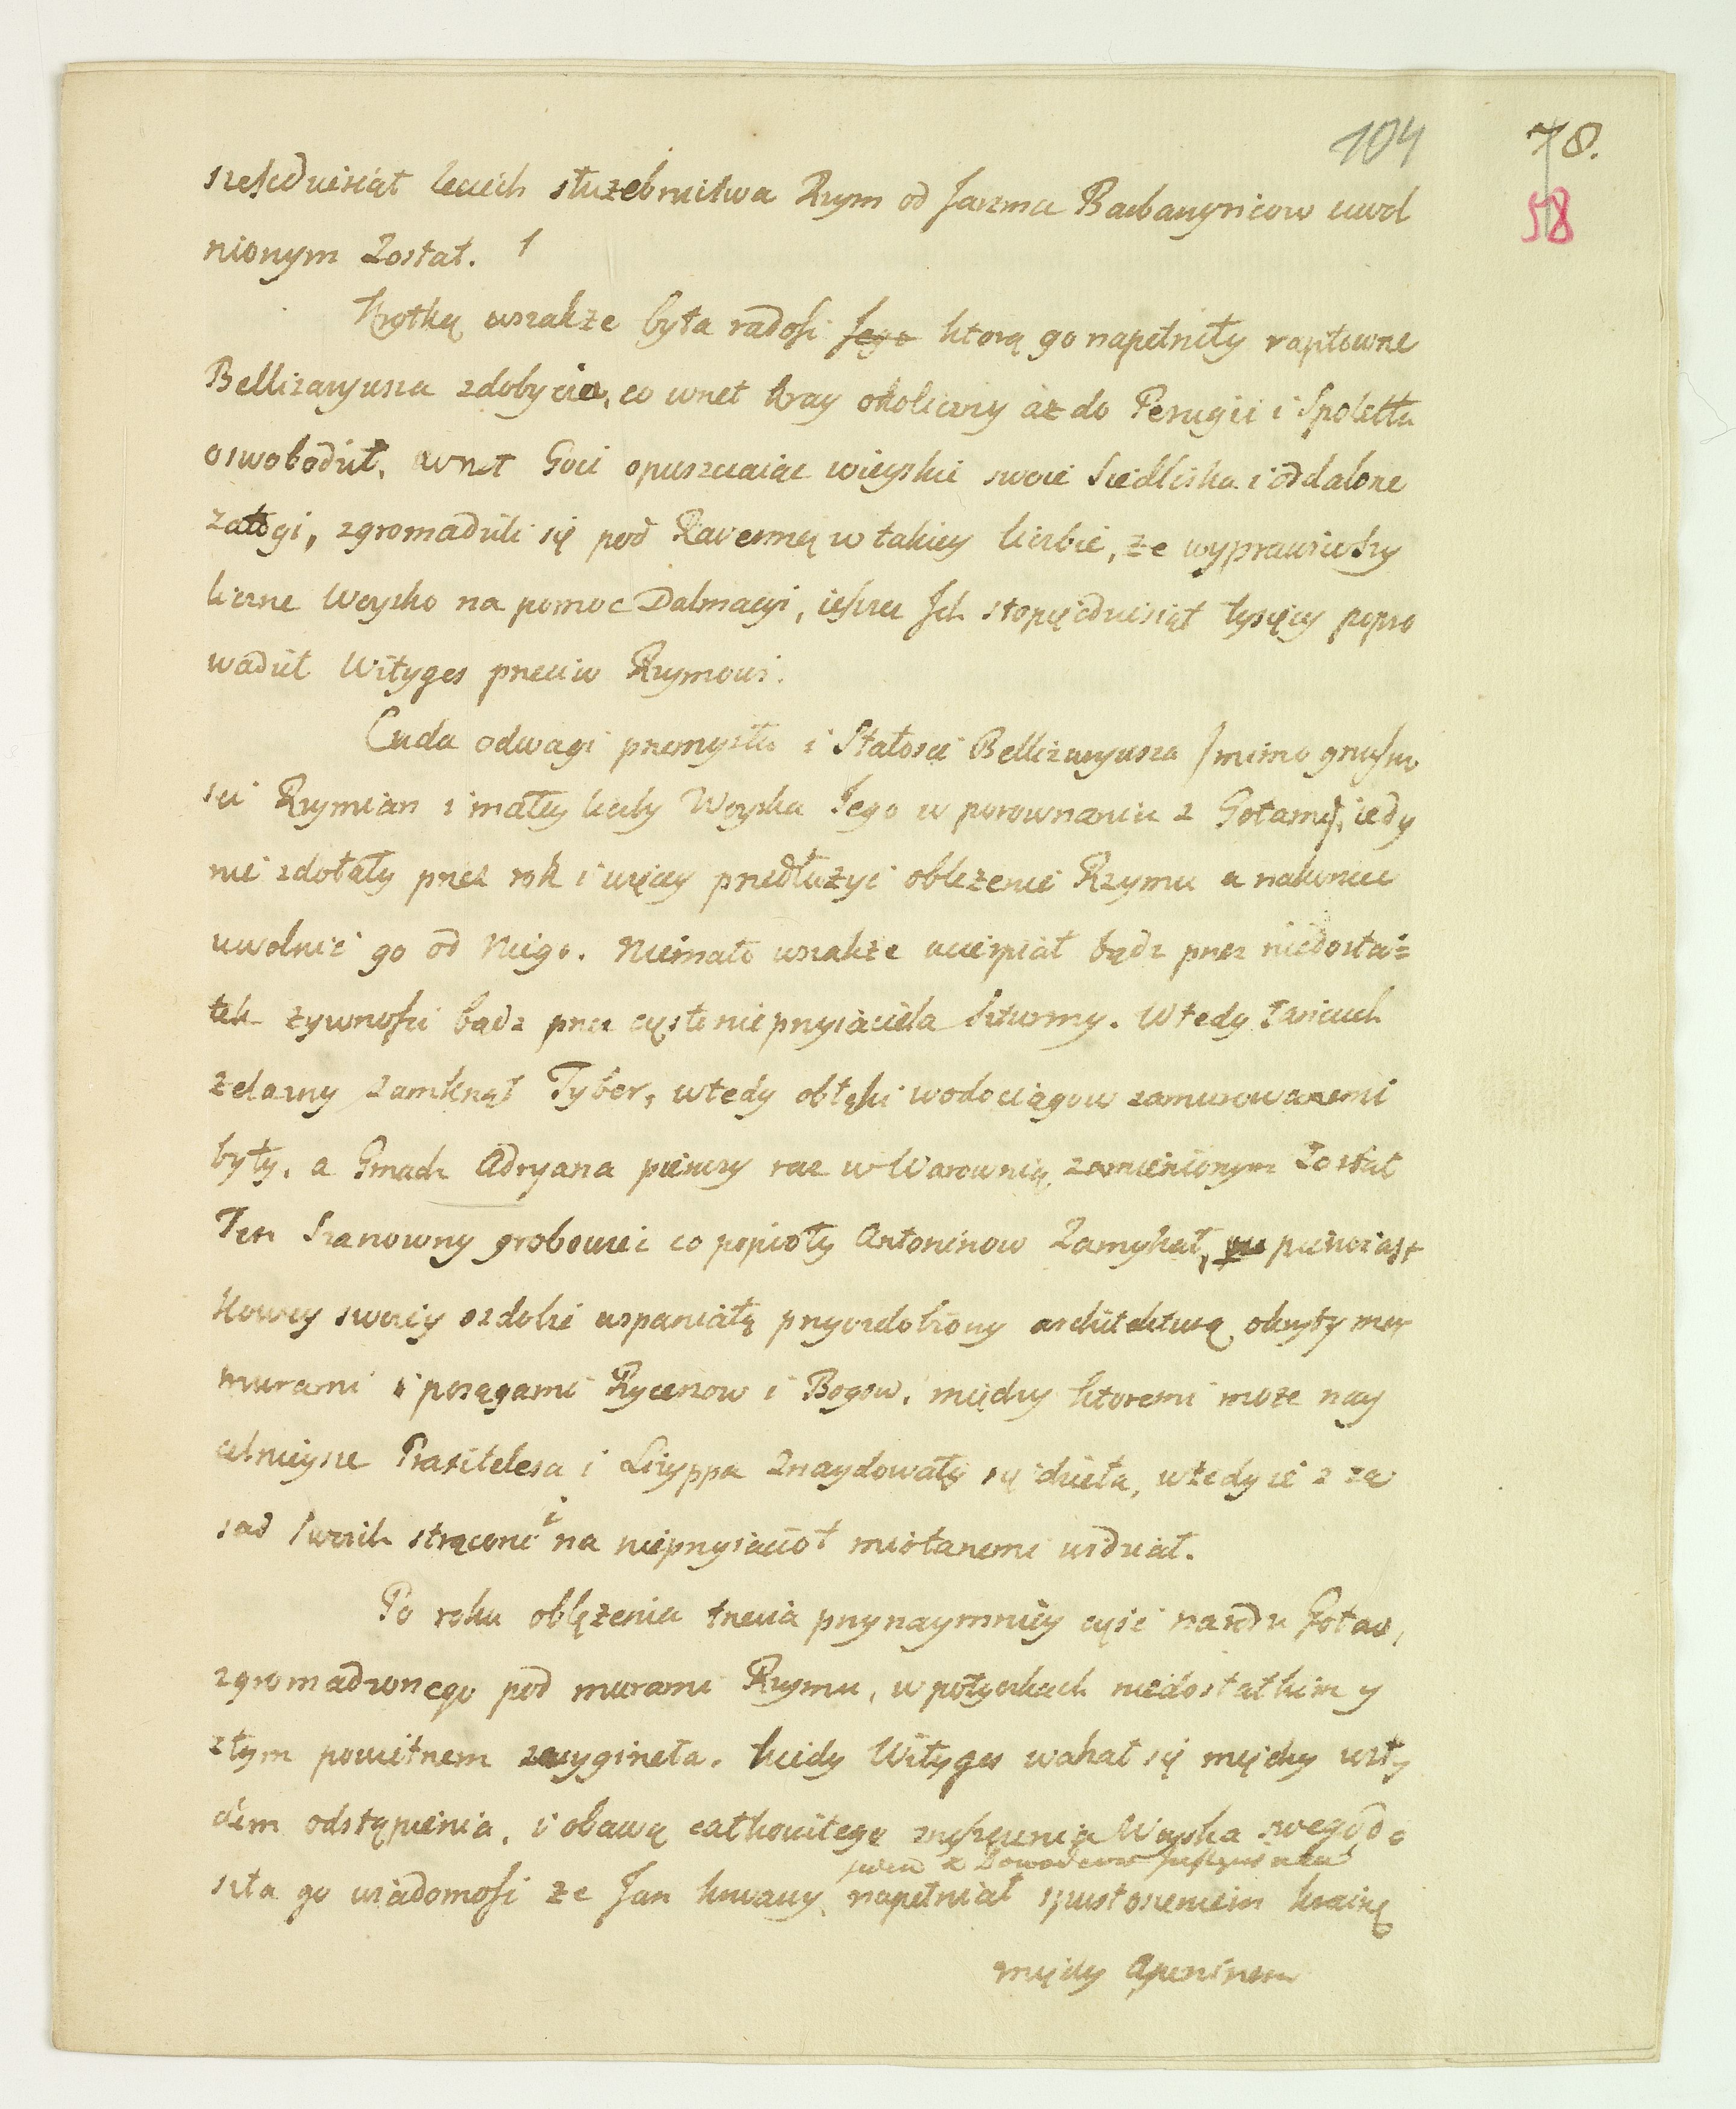 104
78.
58
sześćdziesiąt leciech służebnictwa Rzym od Jarzma Barbarzyńcow uwol
nionym Został. 1
Krotką wszakże była radość Jego ktorą go napełniły raptowne
Bellizaryusza zdobycia, co wnet kray okoliczny aż do Perugii i Spolettu
oswobodził, wnet Goci opuszczaiąc wieyskie swoie Siedliska i oddalone
załogi, zgromadzili się pod Ravenną w takiey liczbie, że wyprawiwszy
liczne Woysko na pomoc Dalmacyi, ieszcze Ich stopięćdziesiąt tysięcy popro
wadził Wityges przeciw Rzymowi.
Cuda odwagi przemysłu i Stałości Bellizaryusza /mimo gnuśno
sci Rzymian i małey liczby Woyska Jego w porownaniu z Gotami/, iedy
nie zdołały przez rok i więcey przedłużyć oblężenie Rzymu a nakoniec
uwolnić go od Niego. Niemało wszakże ucierpiał bądz przez niedosta=
tek żywności bądz przez częste nieprzyiaciela Szturmy. Wtedy Łańcuch
żelazny zamknął Tyber, wtedy obłąki wodociągow zamurowanemi
były, a Gmach Adryana pierwszy raz w Warownią zamienionym Został
Ten Szanowny grobowiec co popioły Antoninow Zamykał, w pierwiast
kowey swoiey ozdobie wspaniałą przyozdobiony architekturą okryty mar
murami i posągami Rycerzow i Bogow, między ktoremi może nay
celnieysze Praxitelesa i Lizyppa Znaydowały się dzieła, wtedy ie z za
sad Swoich strącone i na nieprzyiacioł miotanemi widział.
Po roku oblężenia trzecia przynaymniey część narodu Gotow,
zgromadzonego pod murami Rzymu, w potyczkach niedostatkiem y
złym powietrzem wyginęła. kiedy Wityges wahał się między wsty
dem odstąpienia, i obawą całkowitego zniszczenia Woyska swego do
ieden z Dowodzcow Justyniana
szła go wiadomość że Jan krwawy, napełniał spustoszeniem krainę
między Apeninem